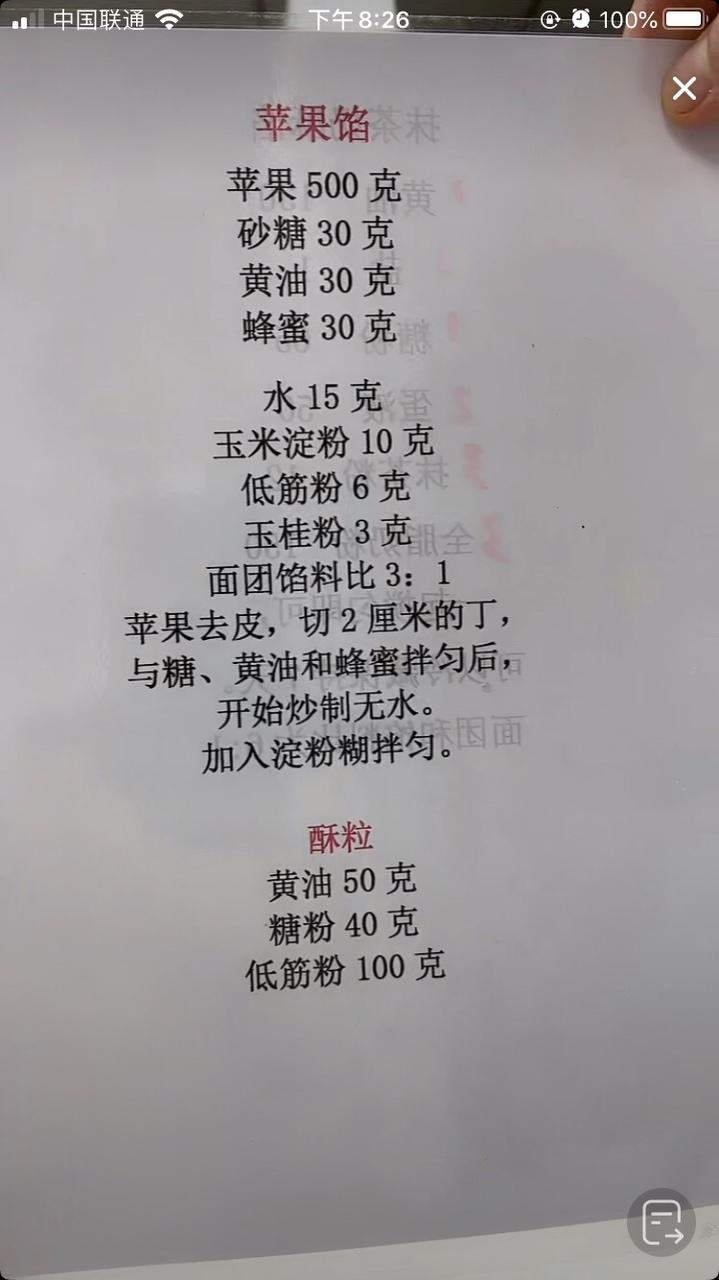 中国联通 下午8:26 100%
苹果馅
苹果 500 克
砂糖 30 克
黄油 30 克
蜂蜜 30 克
水 15 克
玉米淀粉 10 克
低筋粉 6 克
玉桂粉 3 克
面团馅料比 3：1
苹果去皮，切 2 厘米的丁，
与糖、黄油和蜂蜜拌匀后，
开始炒制无水。
加入淀粉糊拌匀。
酥粒
黄油 50 克
糖粉 40 克
低筋粉 100 克